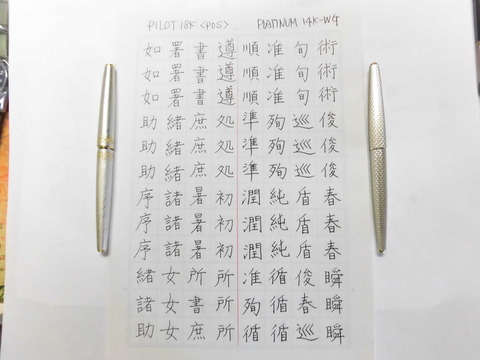 PILOT 18K <POS> PLATINUM 14K-WG
術術術俊俊俊春春春瞬瞬瞬
旬旬旬巡巡巡盾盾盾俊春巡
准准准殉殉殉純純純循循循
順順順準準準潤潤潤准殉循
遵遵遵処処処初初初所所所
書書書庶庶庶暑暑暑所書庶
署署署緒緒緒諸諸諸女女女
如如如助助助序序序緒諸助